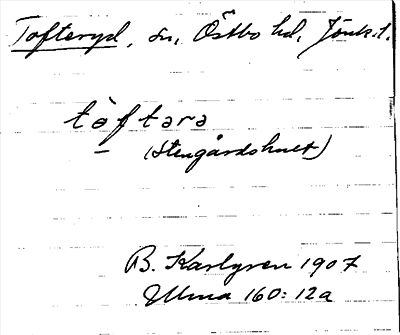 Tofteryd, sn, Östbo hd, Jönk. l.
töftara
(Stengårdshult)
B. Karlgren 1907
Ulma 160: 12a